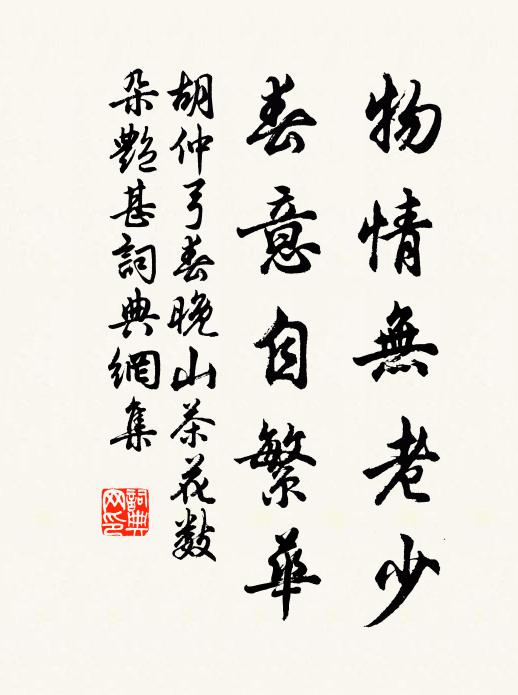 物情無老少
春意自繁華
胡仲弓春晚山茶花數
朵艷甚詞典網集
詞典
网印